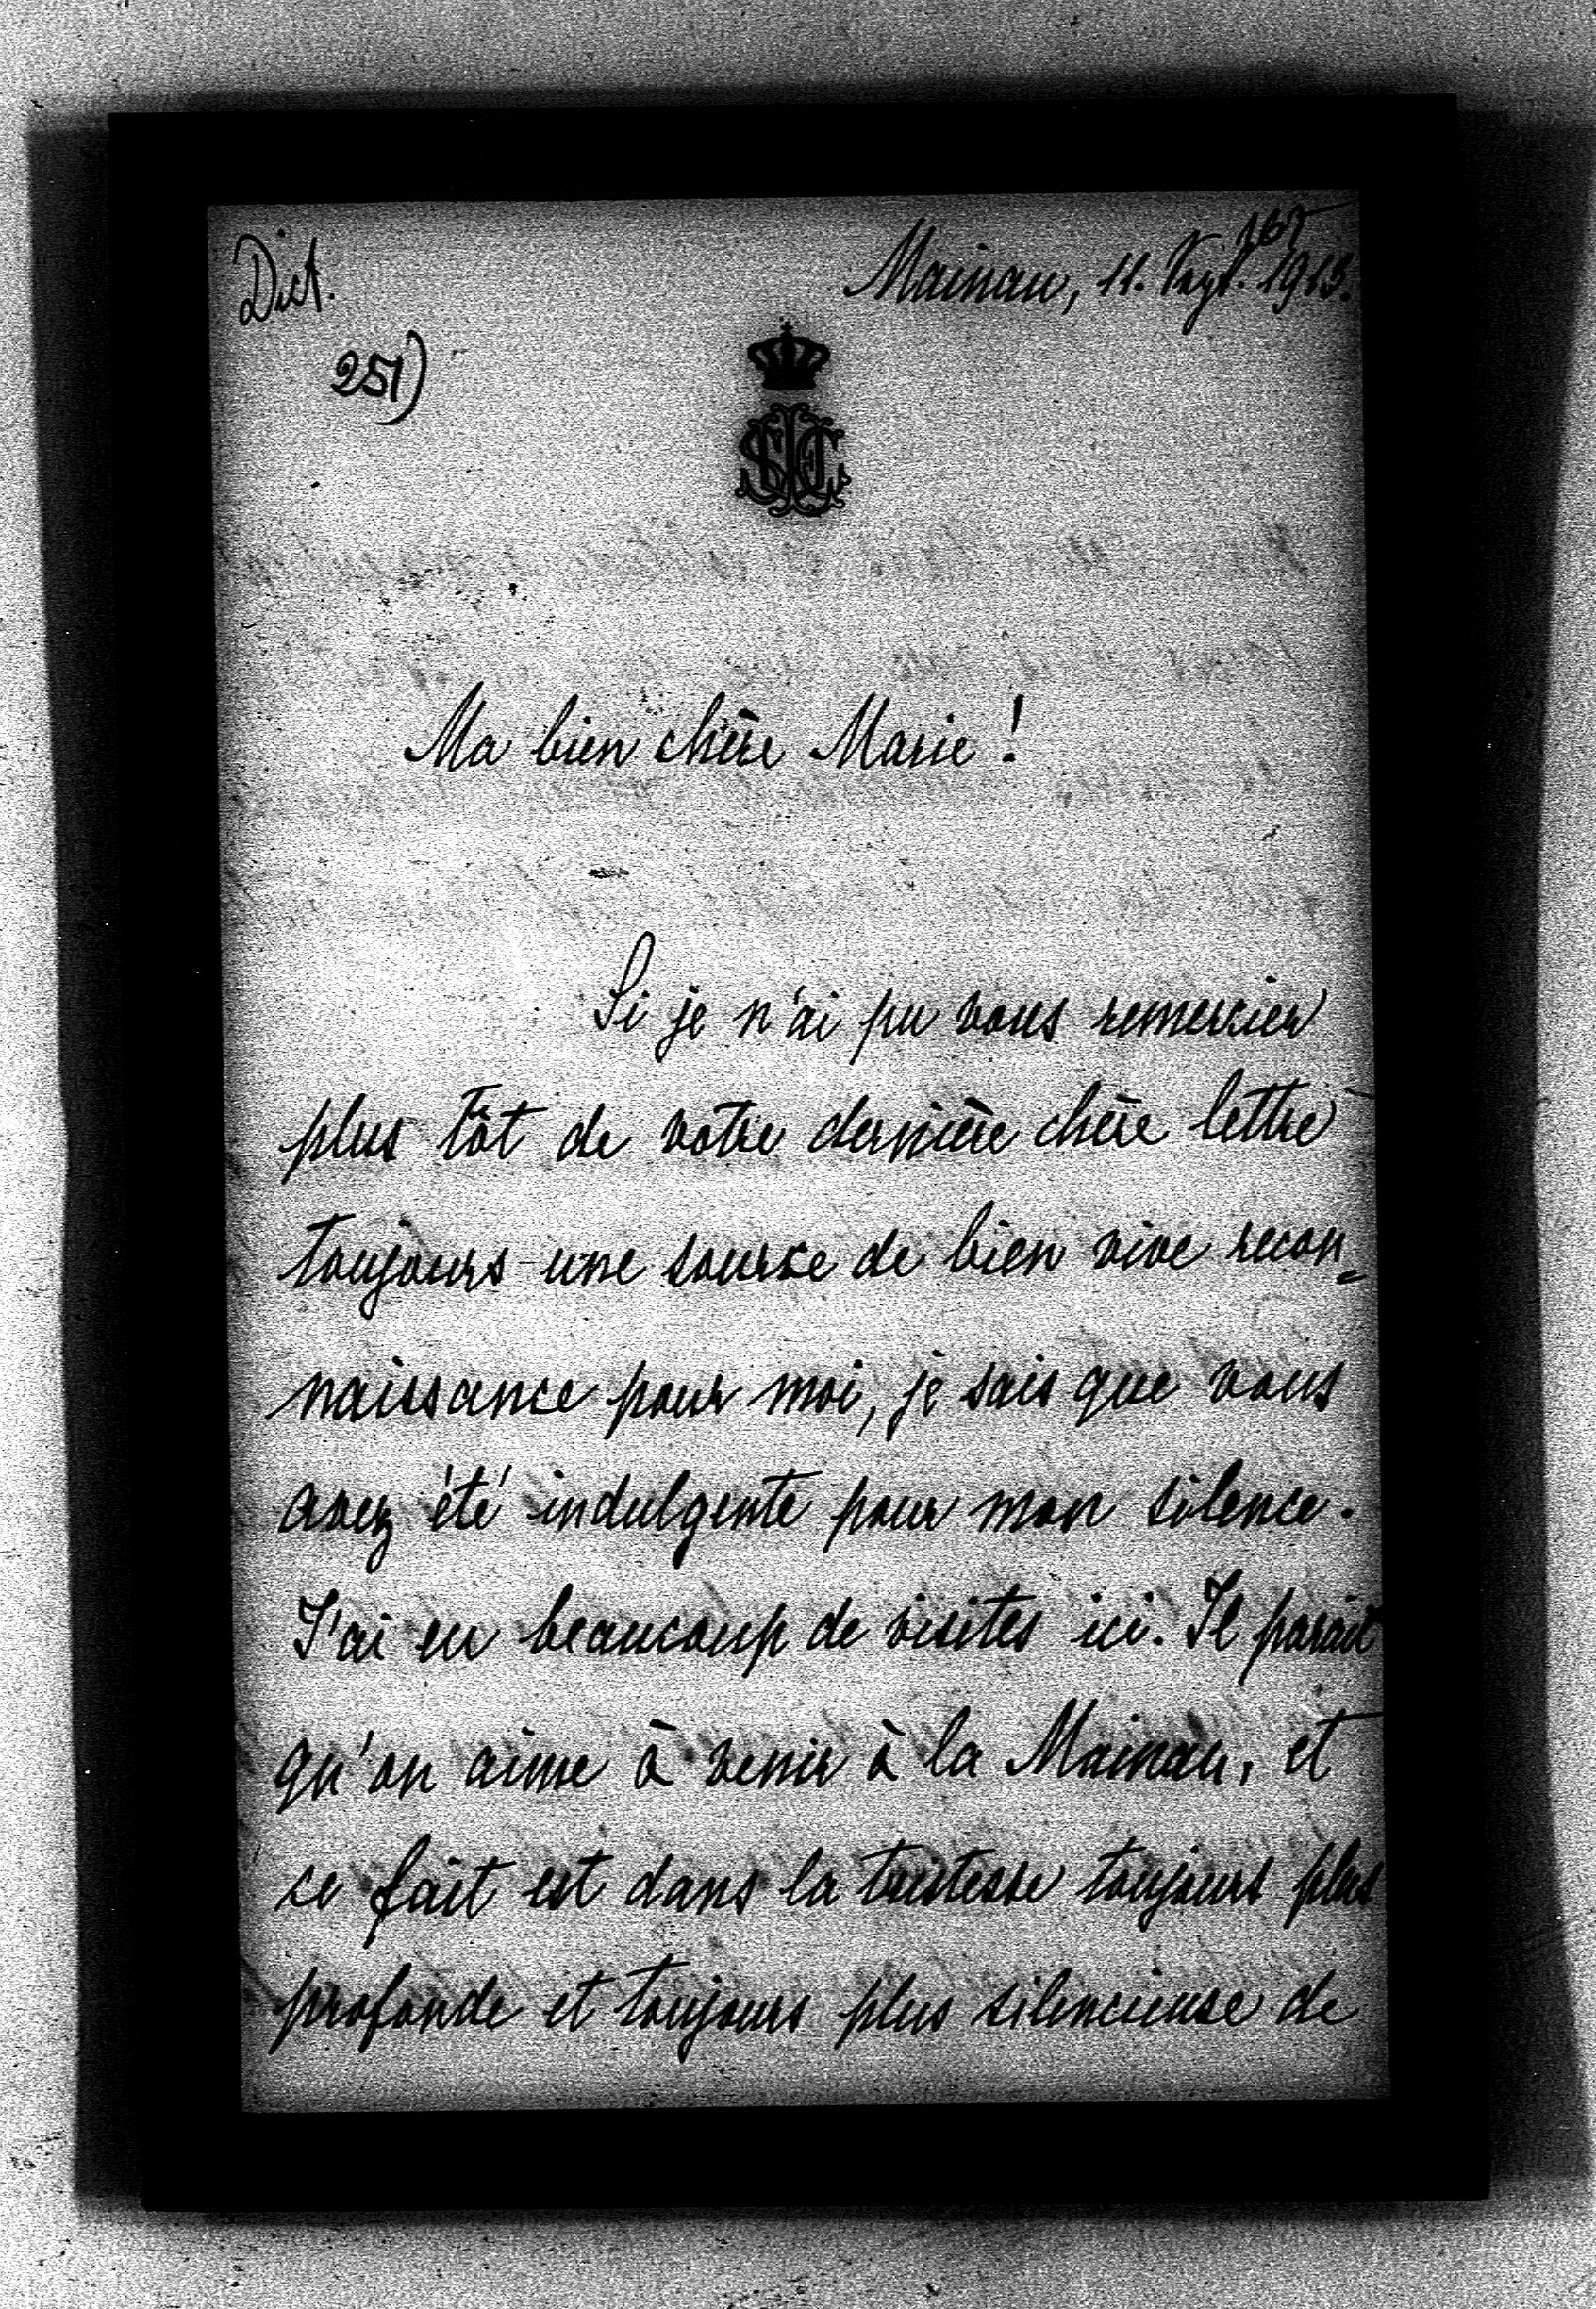 167
Dict. Mainau, 11. Sept. 1913.
251)
Ma bien chère Marie !
Si je n'ai pu vous remercier
plus tôt de votre dernière chère lettre
toujours une source de bien vive recon=
naissance pour moi, je sais que vous
avez été indulgente pour mon silence.
J'ai eu beaucoup de visites ici. Il parait
qu'on aime à venir à la Mainau, et
ce fait est dans la tristesse toujours plus
profonde et toujours plus silencieuse de